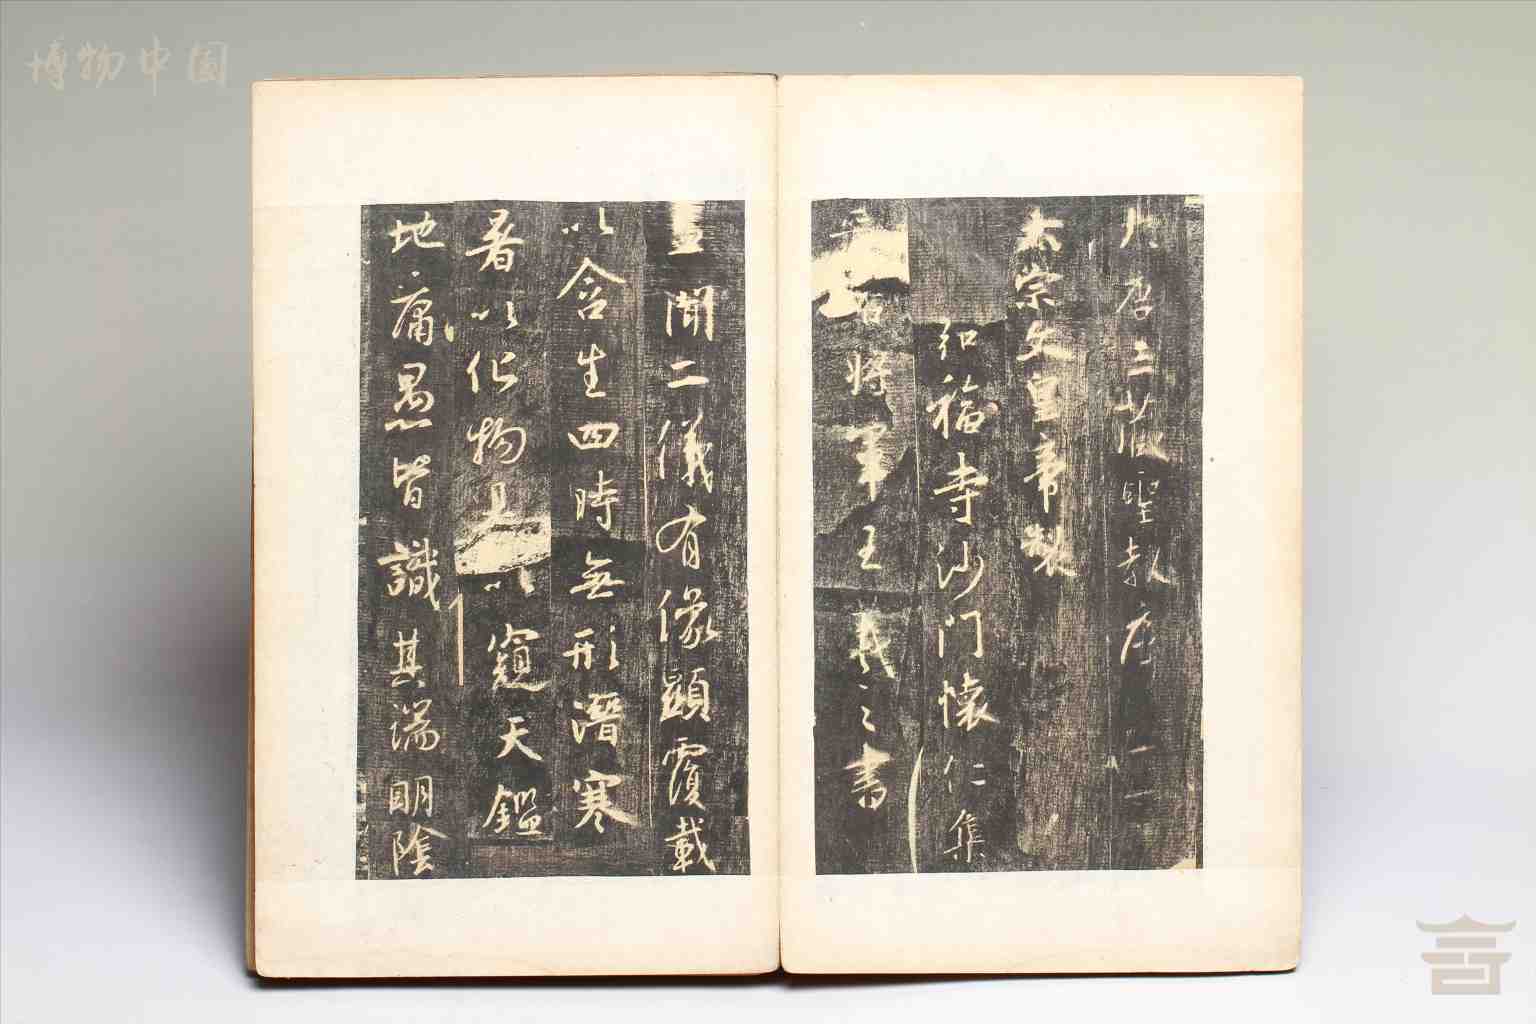 博物中国
大唐三藏聖教序
太宗文皇帝製
弘福寺沙門懷仁集
晉右將軍王羲之書
蓋聞二儀有像顯覆載
以含生四時無形潛寒
暑以化物是以窺天鑑
地庸愚皆識其端明陰